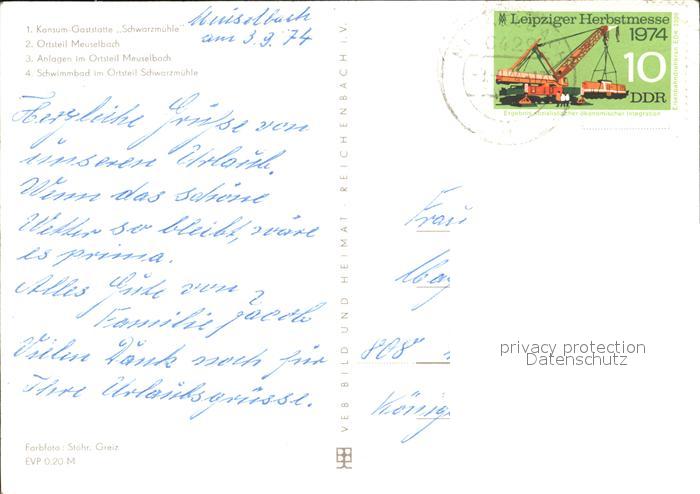 1. Konsum-Gaststätte „Schwarzmühle"
2. Ortsteil Meuselbach
3. Anlagen im Ortsteil Meuselbach
4. Schwimmbad im Ortsteil Schwarzmühle
Meuselbach
am 3.9.74
Herzliche Grüße von
unseren Urlaub.
Wenn das schöne
Wetter so bleibt, wäre
es prima.
Alles Gute von
Familie Jacob
Vielen Dank noch für
Ihre Urlaubsgrüsse.
Farbfoto: Stöhr, Greiz
EVP 0,20 M
VEB BILD UND HEIMAT · REICHENBACH I.V.
Leipziger Herbstmesse
1974
10
DDR
Eisenbahndrehkran EDK 2000
Ergebnis sozialistischer ökonomischer Integration
Frau
808
König
privacy protection
Datenschutz